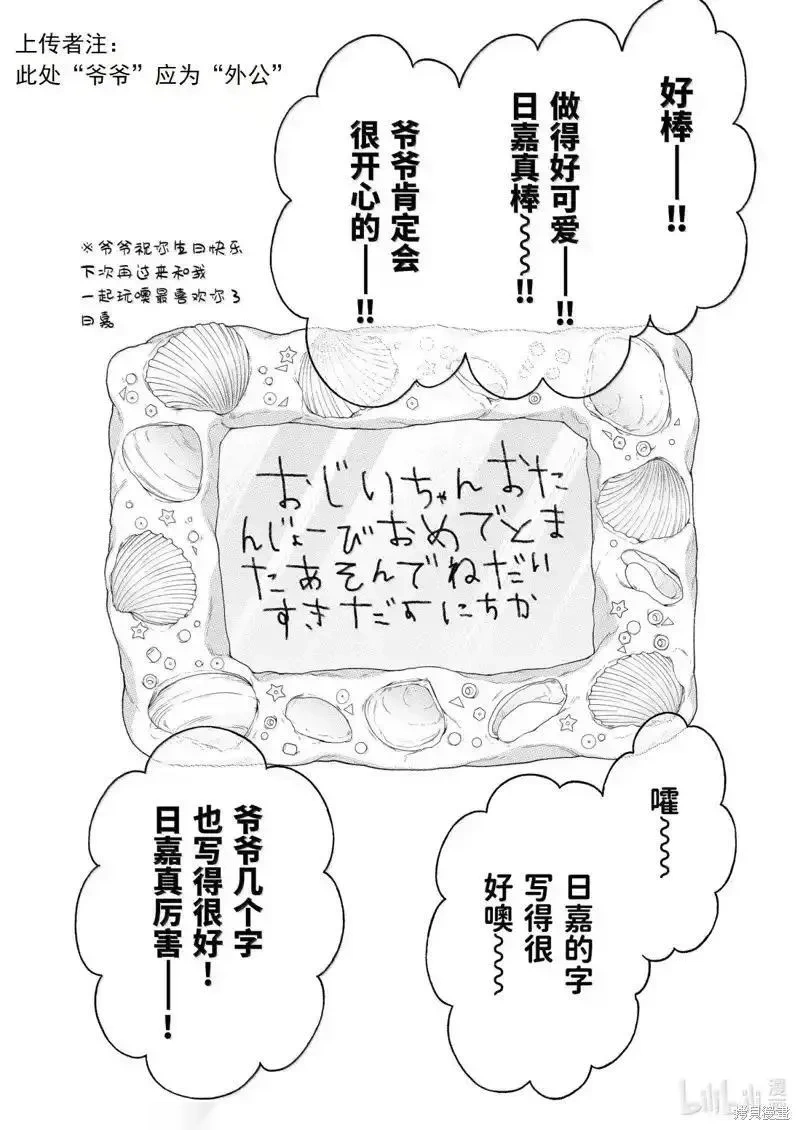 上传者注：
此处“爷爷”应为“外公”
好棒——!!
做得好可爱——!!
日嘉真棒~~~!!
爷爷肯定会
很开心的——!!
※爷爷祝你生日快乐
下次再过来和我
一起玩噢最喜欢你了
日嘉
おじいちゃんおた
んじょーびおめでとま
たあそんでねだい
すきだよにちか
嚯~~~
日嘉的字
写得很
好噢~~~
爷爷几个字
也写得很好！
日嘉真厉害——！
bilibili漫画
拷貝漫畫